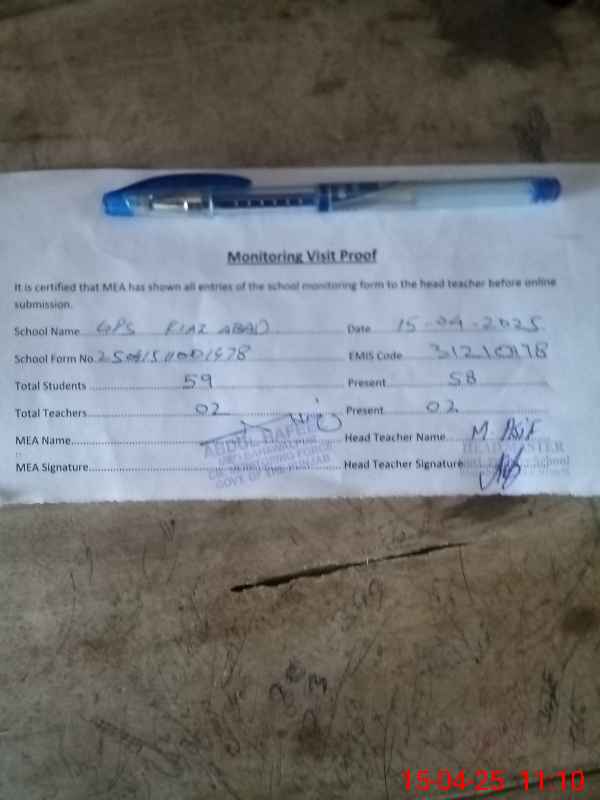 Monitoring Visit Proof
It is certified that MEA has shown all entries of the school monitoring form to the head teacher before online
submission.
School Name GPS RIAZ ABAD Date 15-04-2025
School Form No. EMIS Code 31210178
Total Students 59 Present 58
Total Teachers 02 Present 02
MEA Name Head Teacher Name M Asif
ABDUL HAFEEZ
HEADMASTER
MEA Signature Head Teacher Signature
School
GOVT OF THE PUNJAB
15-04-25 11:10